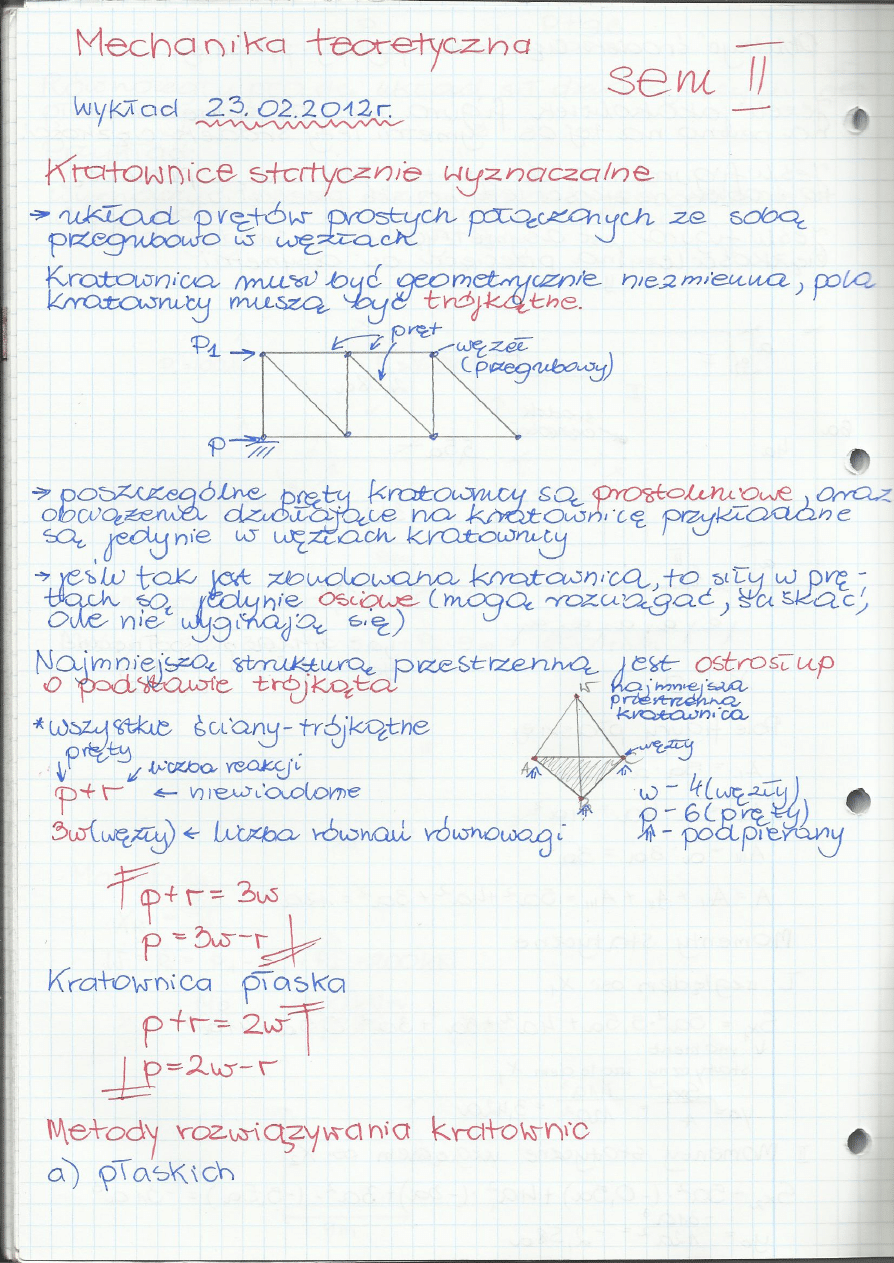 Mechanika teoretyczna
sem II
wykład 23.02.2012r.
Kratownice statycznie wyznaczalne
→ układ prętów prostych połączonych ze sobą
przegubowo w węzłach
Kratownica musi być geometrycznie niezmienna, pola
kratownicy muszą być trójkątne.
P1
pręt
węzeł
(przegubowy)
P
→ poszczególne pręty kratownicy są prostoliniowe, oraz
obciążenia działające na kratownicę przykładane
są jedynie w węzłach kratownicy
→ jeśli tak jest zbudowana kratownica, to siły w prę-
tach są jedynie osiowe (mogą rozciągać, ściskać,
ale nie wyginają się)
Najmniejszą strukturą przestrzenną jest ostrosłup
o podstawie trójkąta
W najmniejsza
przestrzenna
kratownica
*wszystkie ściany-trójkątne
pręty
liczba reakcji
węzły
A
B
C
p+r ← niewiadome
w - 4(węzły)
p - 6(pręty)
⇑ - podpierany
3w(węzły) ← liczba równań równowagi
p+r = 3w
p = 3w-r
Kratownica płaska
p+r = 2w
p=2w-r
Metody rozwiązywania kratownic
a) płaskich